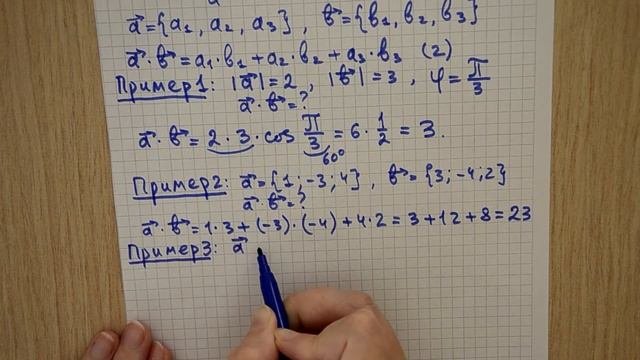 a⃗={a₁, a₂, a₃} , b⃗={b₁, b₂, b₃}
a⃗·b⃗=a₁·b₁+a₂·b₂+a₃·b₃ (2)
Пример1: |a⃗|=2 , |b⃗|=3 , φ=π/3
a⃗·b⃗=?
a⃗·b⃗=2·3·cos π/3=6·1/2=3.
60°
Пример2: a⃗={1;-3;4} , b⃗={3;-4;2}
a⃗·b⃗=?
a⃗·b⃗=1·3+(-3)·(-4)+4·2=3+12+8=23
Пример3: a⃗